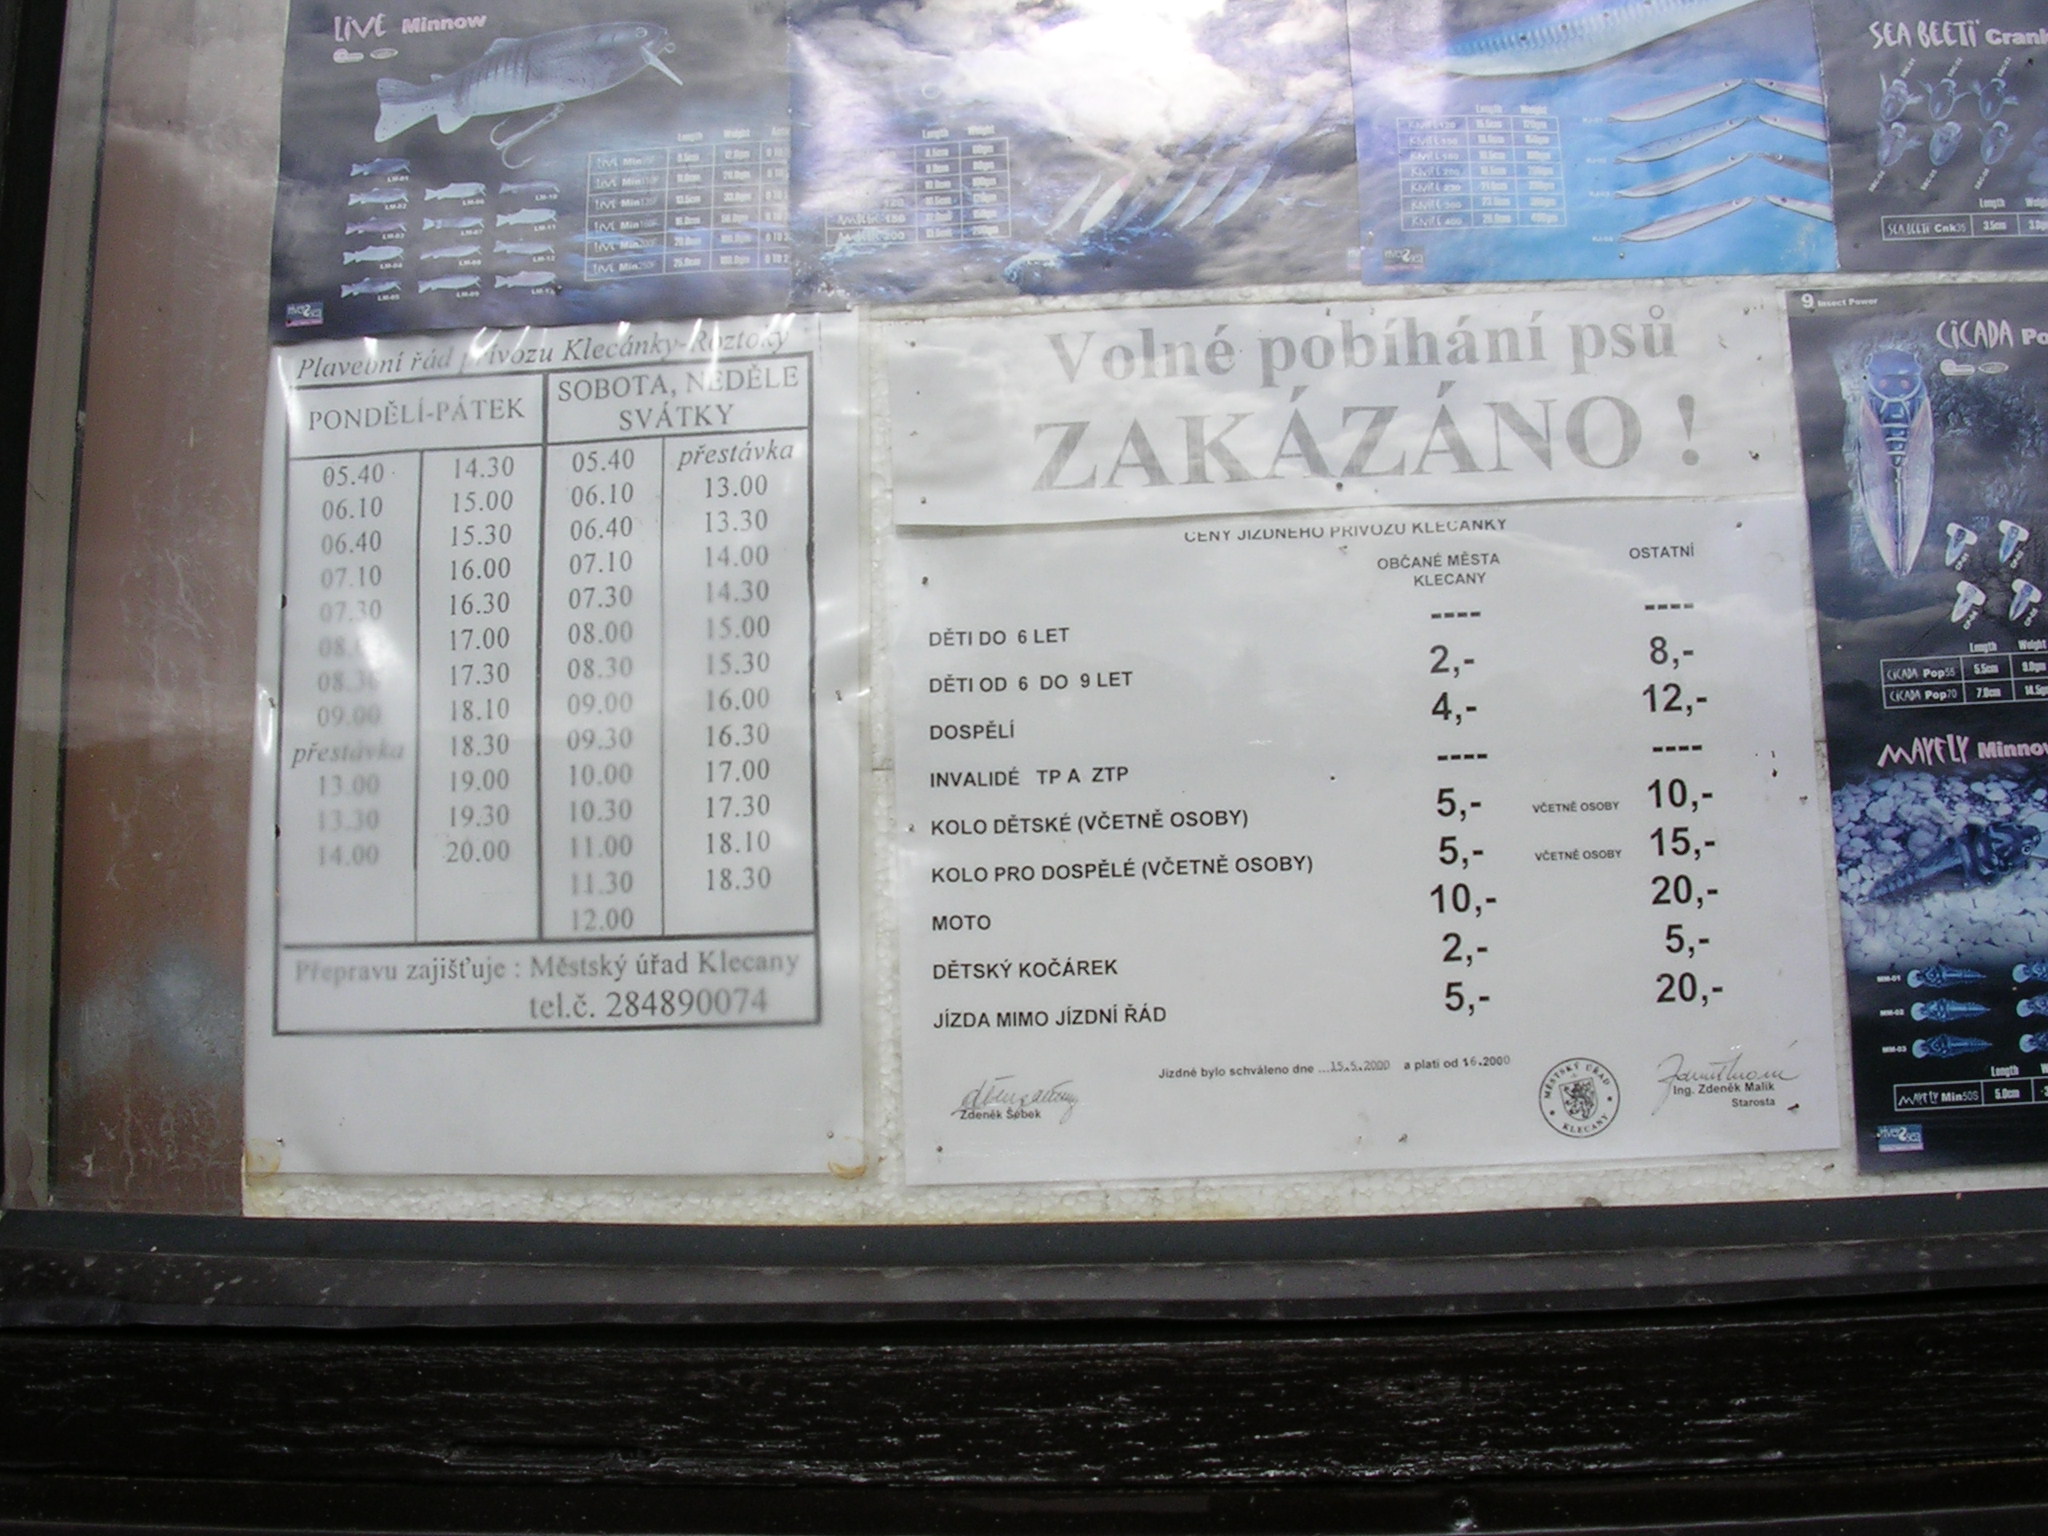 LIVE Minnow
Length Weight
LM-01
SEA BEETL Crank
Length
SEA BEETL Cnk35 3.5cm
Plavební řád přívozu Klecánky-Roztoky
PONDĚLÍ-PÁTEK
SOBOTA, NEDĚLE
SVÁTKY
05.40 14.30 05.40 přestávka
06.10 15.00 06.10 13.00
06.40 15.30 06.40 13.30
07.10 16.00 07.10 14.00
07.30 16.30 07.30 14.30
17.00 08.00 15.00
08.30 17.30 08.30 15.30
09.00 18.10 09.00 16.00
přestávka 18.30 09.30 16.30
13.00 19.00 10.00 17.00
13.30 19.30 10.30 17.30
14.00 20.00 11.00 18.10
11.30 18.30
12.00
Přepravu zajišťuje : Městský úřad Klecany
tel.č. 284890074
Volné pobíhání psů
ZAKÁZÁNO !
CENY JÍZDNÉHO PŘÍVOZU KLECÁNKY
OBČANÉ MĚSTA
KLECANY
OSTATNÍ
DĚTI DO 6 LET ---- ----
DĚTI OD 6 DO 9 LET 2,- 8,-
DOSPĚLÍ 4,- 12,-
INVALIDÉ TP A ZTP ---- ----
KOLO DĚTSKÉ (VČETNĚ OSOBY) 5,- VČETNĚ OSOBY 10,-
KOLO PRO DOSPĚLÉ (VČETNĚ OSOBY) 5,- VČETNĚ OSOBY 15,-
MOTO 10,- 20,-
DĚTSKÝ KOČÁREK 2,- 5,-
JÍZDA MIMO JÍZDNÍ ŘÁD 5,- 20,-
Jízdné bylo schváleno dne ...15.5.2000 a platí od 16.2000
Zdeněk Šebek
MĚSTSKÝ ÚŘAD
KLECANY
Ing. Zdeněk Malík
Starosta
9 Insect Power
CICADA
Length Weight
CICADA Pop55 5.5cm 9.0gm
CICADA Pop70 7.0cm 14.5gm
MAYFLY Minnow
MM-01
MM-02
MM-03
Length
MAYFLY Min50S 5.0cm